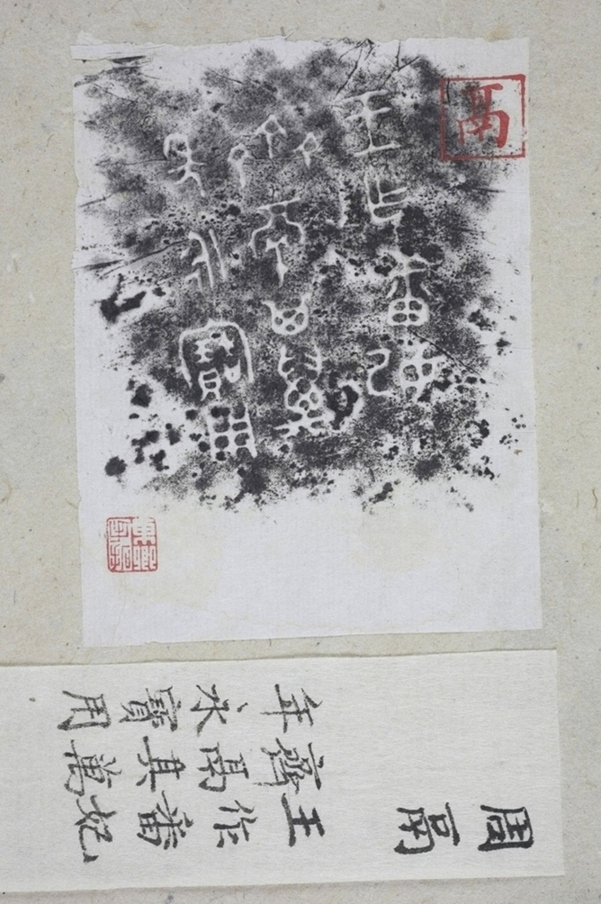 鬲
王乍番妃
齊鬲其萬
年永寶用
周鬲
王作番妃
齊鬲其萬
年永寶用